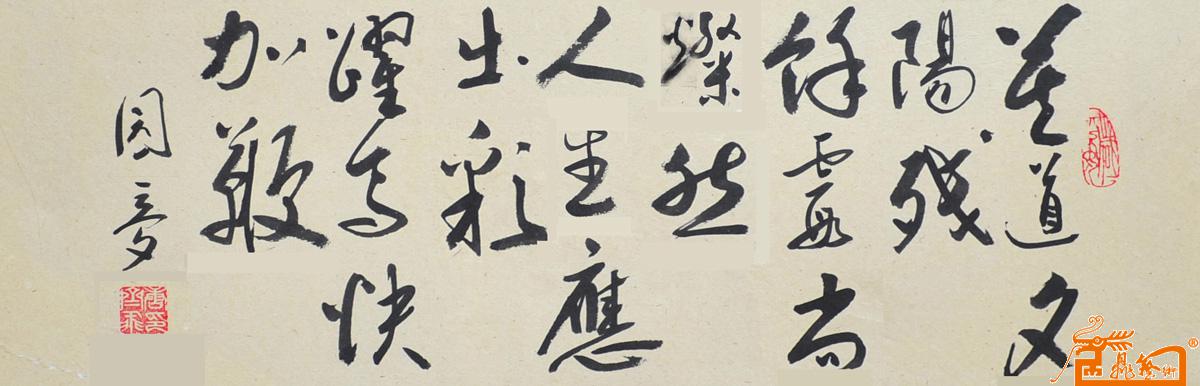 莫道夕
陽殘
餘霞尚
燦然
人生應
出彩
躍馬快
加鞭